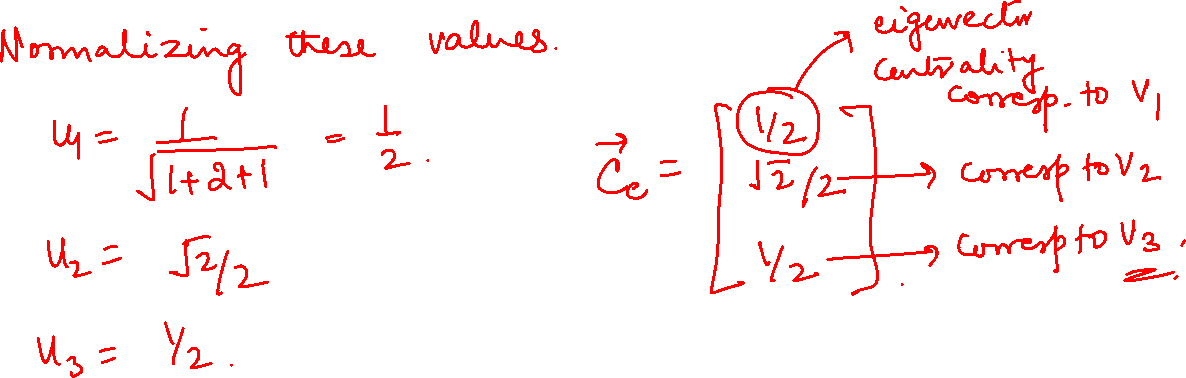 Normalizing these values.
u1 = 1/√(1+2+1) = 1/2.
u2 = √2/2
u3 = 1/2.
eigenvector
centrality
corresp. to V1
C⃗e = [ 1/2
√2/2 → corresp to V2
1/2 ] → corresp to V3.